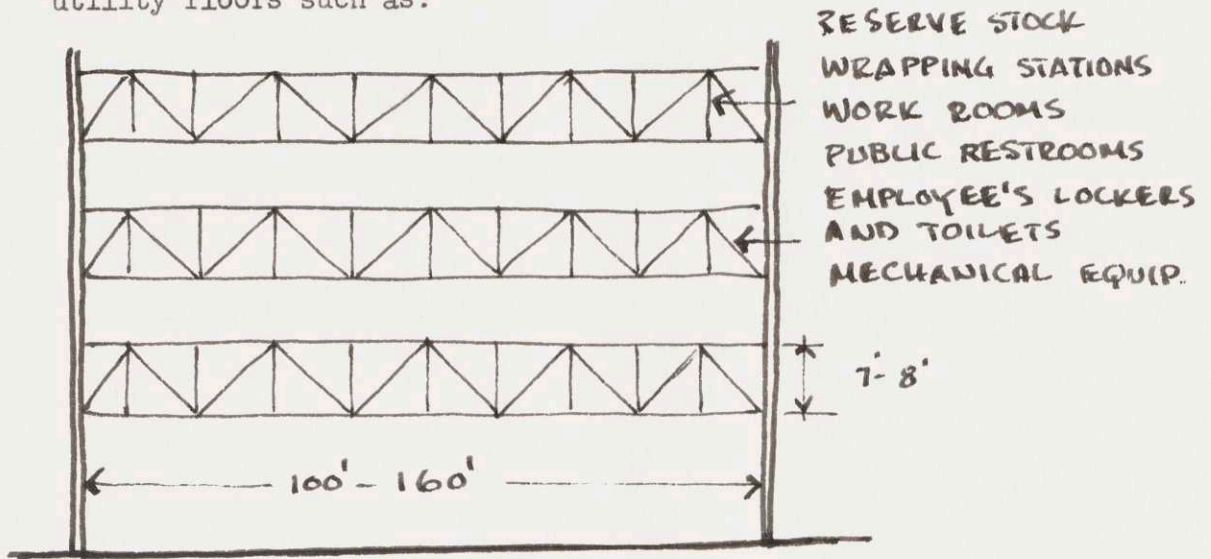 utility floors such as:
RESERVE STOCK
WRAPPING STATIONS
WORK ROOMS
PUBLIC RESTROOMS
EMPLOYEE'S LOCKERS
AND TOILETS
MECHANICAL EQUIP.
7'-8'
100'-160'